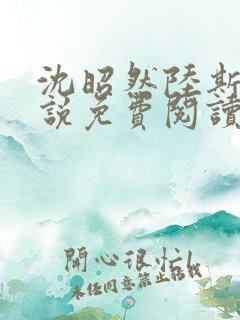 沈昭然陸斯
說免費閱讀
開心很忙
未经同意禁止转载